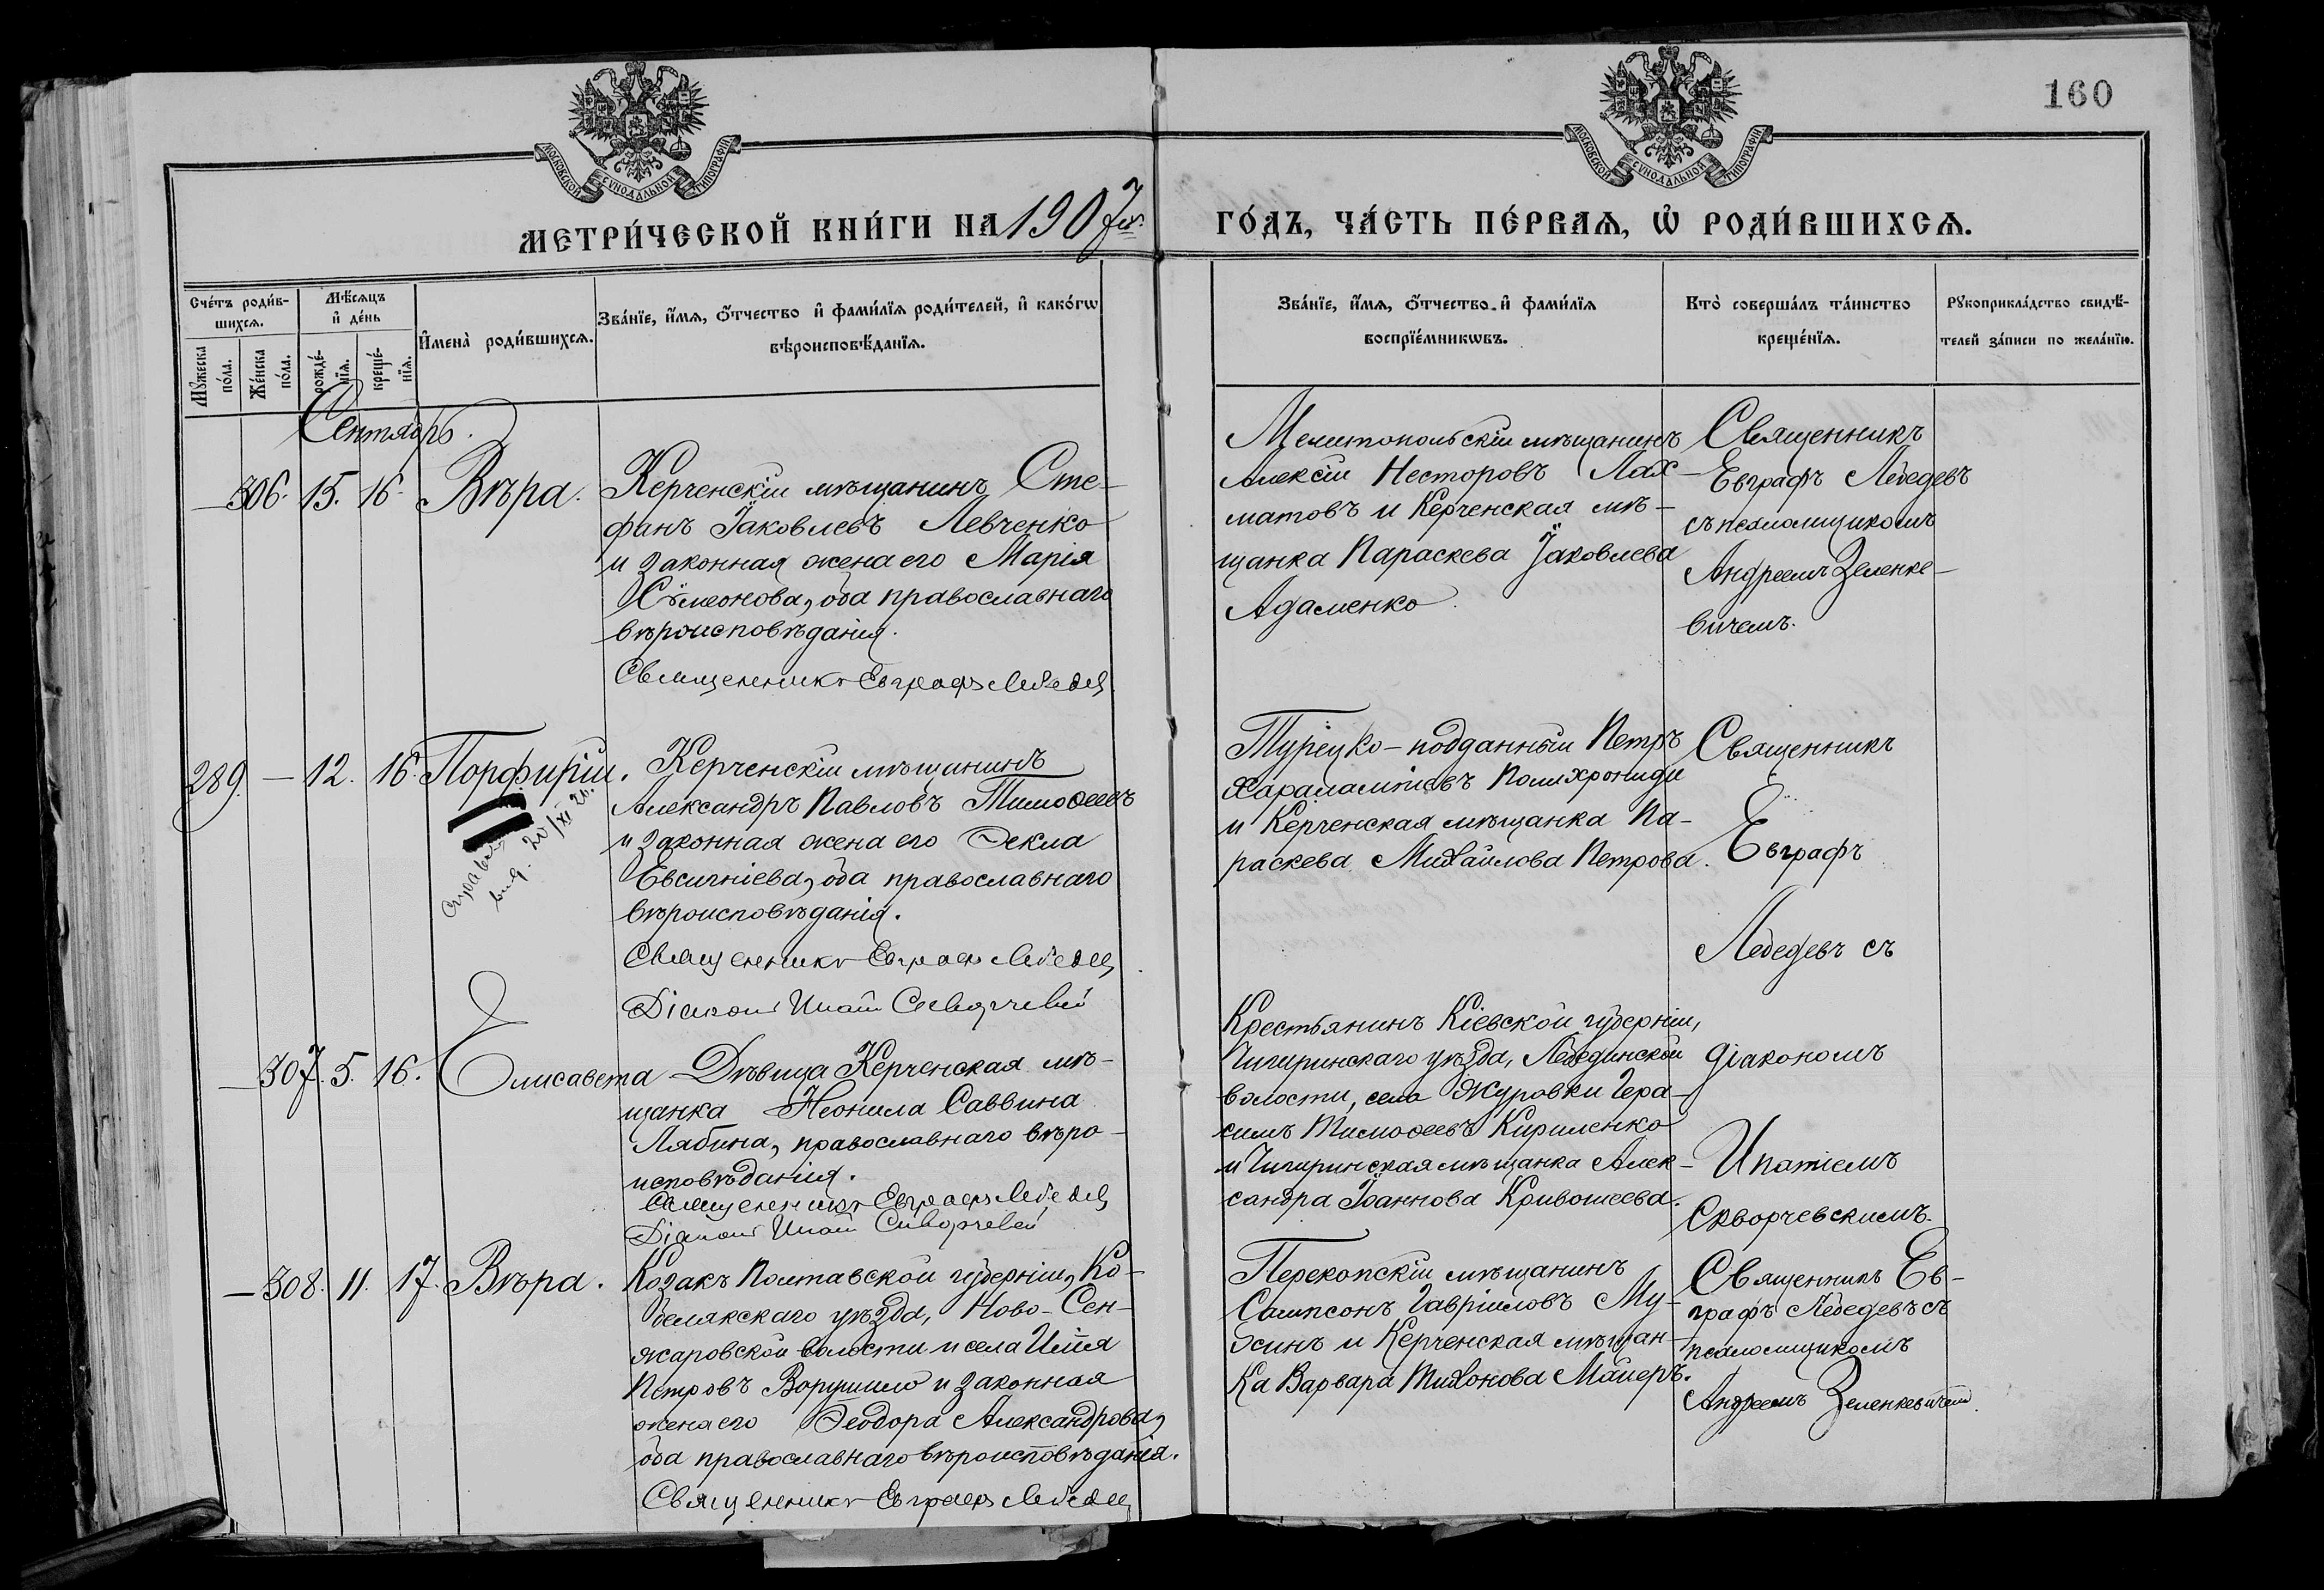 160
МОСКОВСКОЙ СѴНОДАЛЬНОЙ ТИПОГРАФІИ
МОСКОВСКОЙ СѴНОДАЛЬНОЙ ТИПОГРАФІИ
МЕТРИ́ЧЕСКОЙ КНИ́ГИ НА 1907 й. ГО́ДЪ, ЧА́СТЬ ПЕ́РВАѦ, Ѿ РОДИ́ВШИХСѦ.
Сче́тъ роди́в-
шихсѧ.
Мꙋжеска по́ла.
Же́нска по́ла.
Мѣ́сяцъ и҆ де́нь
рожде́-
нїѧ.
креще́-
нїѧ.
И҆мена̀ роди́вшихсѧ.
Зва́нїе, и҆́мѧ, о҆́тчество и҆ фами́лїѧ роди́телей, и҆ како́гѡ
вѣроисповѣ́данїѧ.
Зва́нїе, и҆́мѧ, о҆́тчество и҆ фами́лїѧ
воспрїе́мникѡвъ.
Кто̀ соверша́лъ та́инство
креще́нїѧ.
Рꙋкоприкла́дство свидѣ́-
телей за́писи по жела́нїю.
Сентябрь.
— 306. 15. 16. Вѣра.
Керченскій мѣщанинъ Сте-
фанъ Іаковлевъ Левченко
и законная жена его Марія
Сѵмеонова, оба православнаго
вѣроисповѣданія.
Священникъ Евграфъ Лебедев
Мелитопольскій мѣщанинъ
Алексій Несторовъ Лах-
матовъ и Керченская мѣ-
щанка Параскева Іаковлева
Адаменко.
Священникъ
Евграфъ Лебедевъ
съ псаломщикомъ
Андреемъ Зеленке-
вичемъ.
289. — 12. 16. Порфирій.
выд. 20/XI 20.
Керченскій мѣщанинъ
Александръ Павловъ Тимоѳеевъ
и законная жена его Ѳекла
Евсигніева, оба православнаго
вѣроисповѣданія.
Священникъ Евграфъ Лебедев
Діаконъ Ипатій
Турецко-подданный Петръ
Харалампіевъ Полихрониди
и Керченская мѣщанка Па-
раскева Михайлова Петрова.
Священникъ
Евграфъ
Лебедевъ съ
діакономъ
Ипатіемъ
Скворчевскимъ.
— 307. 5. 16. Елисавета
Дѣвица Керченская мѣ-
щанка Неонила Саввина
Лябина, православнаго вѣро-
исповѣданія.
Священникъ Евграфъ Лебедев
Діаконъ Ипатій
Крестьянинъ Кіевской губерніи,
Чигиринскаго уѣзда, Лебединской
волости, села Журовки Гера-
симъ Тимоѳеевъ Кириленко
и Чигиринская мѣщанка Алек-
сандра Іоаннова Кривошеева.
— 308. 11. 17. Вѣра.
Козакъ Полтавской губерніи, Ко-
белякскаго уѣзда, Ново-Сен-
жаровской волости и села Илія
Петровъ Ворушило и законная
жена его Ѳеодора Александрова,
оба православнаго вѣроисповѣданія.
Священникъ Евграфъ Лебедев
Перекопскій мѣщанинъ
Сампсонъ Гавріиловъ Му-
синъ и Керченская мѣщан-
ка Варвара Тихонова Майеръ.
Священникъ Ев-
графъ Лебедевъ съ
псаломщикомъ
Андреемъ Зеленкевичемъ.